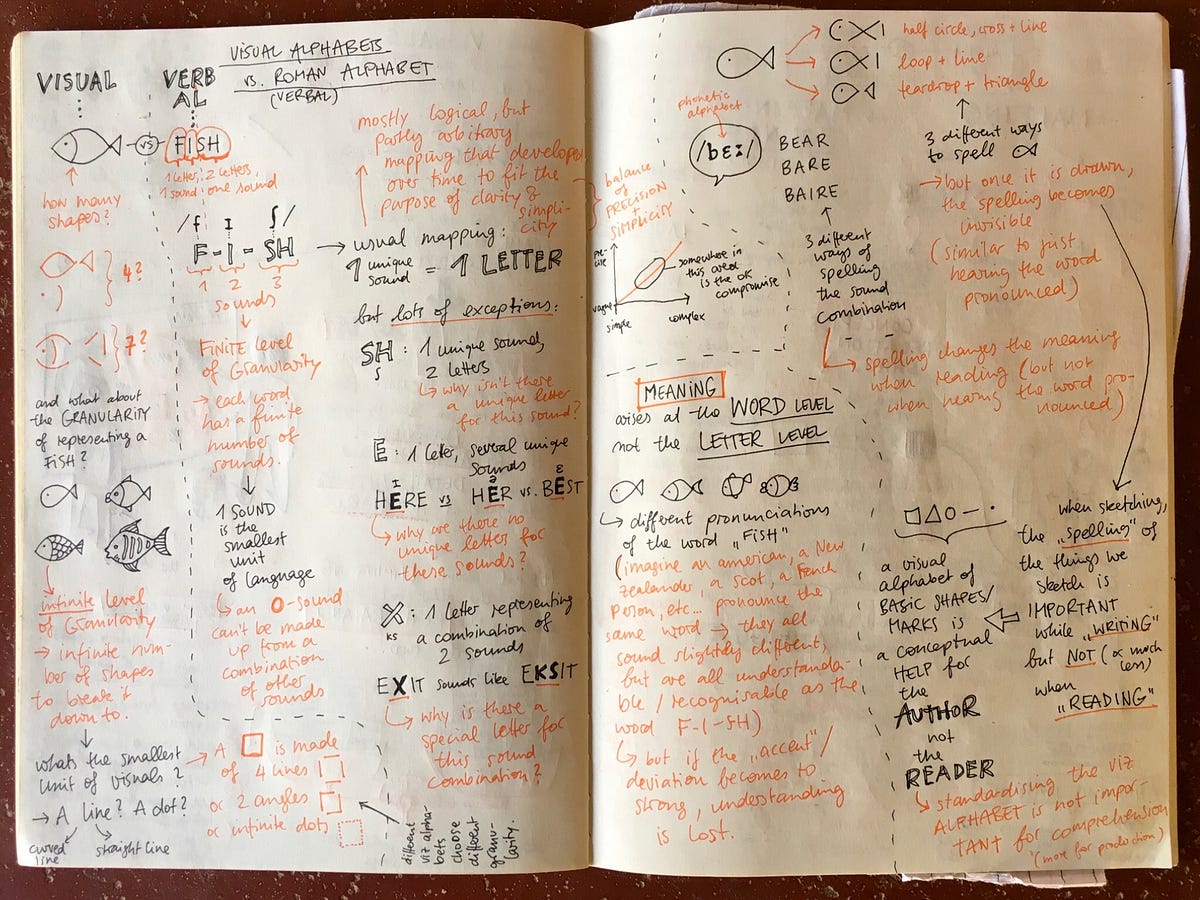 VISUAL ALPHABETS
vs. ROMAN ALPHABET
(VERBAL)
VISUAL
VERB
AL
vs
FISH
1 letter,
1 sound
2 letters,
one sound
how many
shapes?
4?
7?
and what about
the GRANULARITY
of representing a
FISH?
infinite level
of Granularity
→ infinite num-
ber of shapes
to break it
down to.
whats the smallest
Unit of visuals?
→ A line? A dot?
curved
line
straight line
/f I ʃ/
F-I-SH
1 2 3
sounds
FiNiTE level
of Granularity
→ each word
has a finite
number of
sounds.
1 SOUND
is the
smallest
unit
of language
an O-sound
can't be made
up from a
combination
of other
sounds
→ A □ is made
of 4 lines
or 2 angles
or infinite dots
different
viz alpha-
bets
choose
different
granu-
larity.
mostly logical, but
partly arbitrary
mapping that developed
over time to fit the
purpose of clarity &
simpli-
city
→ usual mapping:
1 unique
sound = 1 LETTER
but lots of exceptions:
SH : 1 unique sound,
ʃ
2 letters
why isn't there
a unique letter
for this sound?
E : 1 leter, several unique
sounds
I ɛ
HERE vs HER vs. BEST
why are there no
unique letter for
these sounds?
X : 1 letter representing
ks
a combination of
2 sounds
EXIT sounds like EKSIT
why is there a
special letter for
this sound
combination?
balance
of
PRECISION
+
SIMPLICITY
pre-
cise
vague
simple
complex
somewhere in
this area
is the OK
compromise
phonetic
alphabet
/bɛː/
BEAR
BARE
BAIRE
3 different
ways of
spelling
the sound
combination
→ spelling changes the meaning
when reading (but not
when hearing the word pro-
nounced)
half circle, cross + line
loop + line
teardrop + triangle
3 different ways
to spell
→ but once it is drawn,
the spelling becomes
invisible
(similar to just
hearing the word
pronounced)
MEANiNG
arises at the WORD LEVEL
not the LETTER LEVEL
different pronunciations
of the word „FiSH"
(imagine an american, a New
zealander, a Scot, a French
Person, etc... pronounce the
same word → they all
sound slightly different,
but are all understanda-
ble / recognisable as the
word F-I-SH)
but if the „accent"/
deviation becomes to
strong, understanding
is lost.
a visual
alphabet of
BASIC SHAPES/
MARKS is
a conceptual
HELP for
the
AUTHOR
not
the
READER
standardising the viz
ALPHABET is not impor-
TANT for comprehension
(more for production)
when sketching,
the „spelling" of
the things we
sketch is
IMPORTANT
while „WRITING"
but NOT (or much
less)
when
„READING"